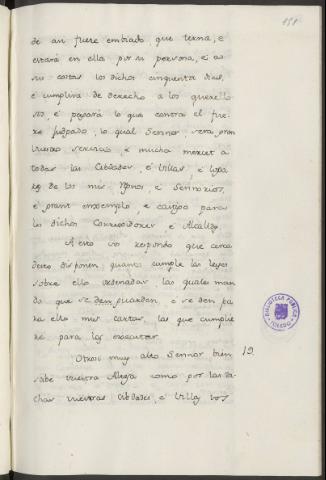 151
de au fuere embiado, que terna, e
estará en ella por su persona, e a
su costas los dichos cinquenta dias,
e cumplira de derecho a los querello
sos, e pagará lo que contra el fue
re juzgado, lo qual Sennor, sera gran
vuestro servicio, e mucha mercet a
todas las Cibdades, e Villas, e luga
res de los mis Regnos, e Sennorios,
e grant enxemplo, e castigo para
los dichos Corregidores, e Alcaldes.
A esto vos respondo que cerca
desto disponen, quanto cumple las leyes
sobre ello ordenadas, las quales man
do que se den guarden, e se den pa
ra ello mis cartas, las que cumplie
re para las executar.
Otrosi muy alto Sennor bien 19.
sabe vuestra Alteza como por las di
chas vuestras Cibdades, e Villas vos
BIBLIOTECA PÚBLICA
TOLEDO